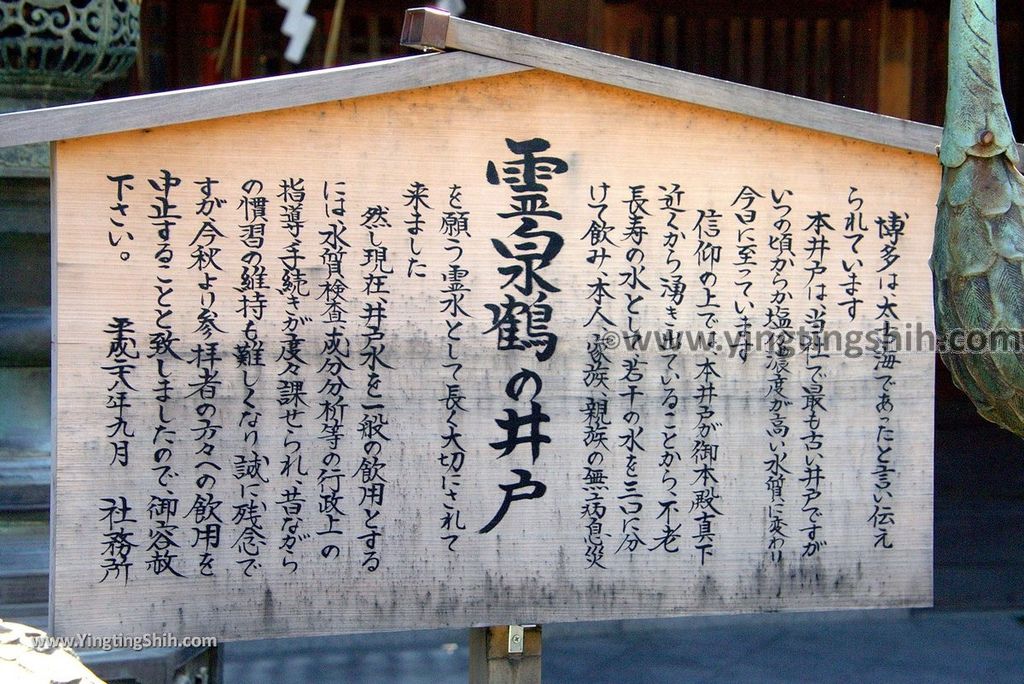 博多は太古海であったと言い伝え
られています
本井戸は、当社で最も古い井戸ですが
いつの頃からか塩分濃度が高い水質に変わり
今日に至っています
信仰の上では、本井戸が御本殿真下
近くから湧き出ていることから、不老
長寿の水として若干の水を三口に分
けて飲み、本人、家族、親族の無病息災
霊泉鶴の井戸
を願う霊水として長く大切にされて
来ました
然し現在、井戸水を一般の飲用とする
には水質検査、成分分析等の行政上の
指導、手続きが度々課せられ、昔ながら
の慣習の維持も難しくなり誠に残念で
すが今秋より参拝者の方々への飲用を
中止することと致しましたので、御容赦
下さい。
平成廿八年九月 社務所
©www.yingtingshih.com
www.YingtingShih.com